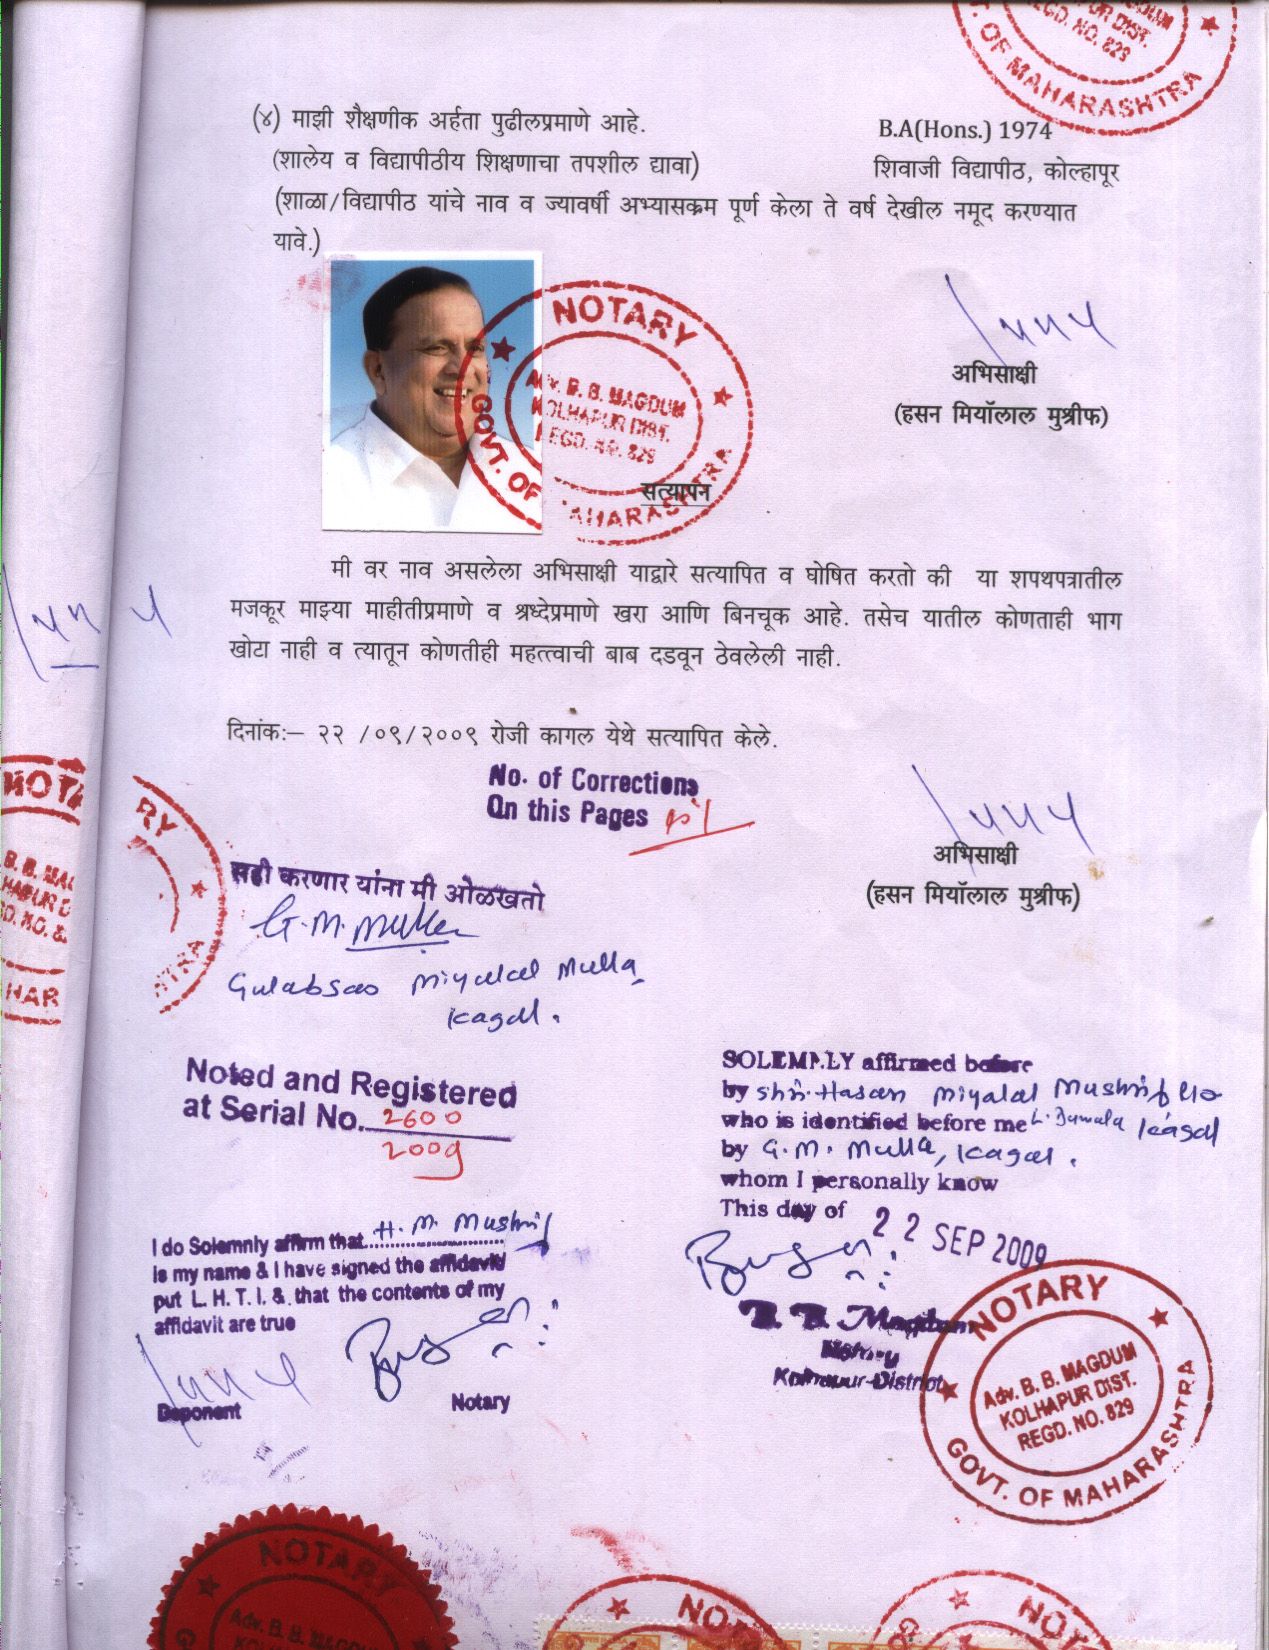 OLHAPUR DIST.
REGD. NO. 829
GOVT. OF MAHARASHTRA
(४) माझी शैक्षणीक अर्हता पुढीलप्रमाणे आहे. B.A(Hons.) 1974
(शालेय व विद्यापीठीय शिक्षणाचा तपशील द्यावा) शिवाजी विद्यापीठ, कोल्हापूर
(शाळा/विद्यापीठ यांचे नाव व ज्यावर्षी अभ्यासक्रम पूर्ण केला ते वर्ष देखील नमूद करण्यात
यावे.)
NOTARY
Adv. B. B. MAGDUM
KOLHAPUR DIST.
REGD. NO. 829
GOVT. OF MAHARASHTRA
अभिसाक्षी
(हसन मियॉलाल मुश्रीफ)
सत्यापन
मी वर नाव असलेला अभिसाक्षी याद्वारे सत्यापित व घोषित करतो की या शपथपत्रातील
मजकूर माझ्या माहीतीप्रमाणे व श्रध्देप्रमाणे खरा आणि बिनचूक आहे. तसेच यातील कोणताही भाग
खोटा नाही व त्यातून कोणतीही महत्त्वाची बाब दडवून ठेवलेली नाही.
दिनांक:– २२ /०९/२००९ रोजी कागल येथे सत्यापित केले.
No. of Corrections
On this Pages
अभिसाक्षी
(हसन मियॉलाल मुश्रीफ)
NOTARY
सही करणार यांना मी ओळखतो
G.M. Mulla
Gulabsao Miyalal Mulla
Kagal.
Noted and Registered
at Serial No. 2600
2009
SOLEMNLY affirmed before
by Shri. Hasan Miyalal Mushrif
who is identified before me Kagal
by G. M. Mulla, Kagal.
whom I personally know
This day of 22 SEP 2009
I do Solemnly affirm that H. M. Mushrif
is my name & I have signed the affidavit
put L. H. T. I. & that the contents of my
affidavit are true
Deponent Notary
B. B. Magdum
Notary
Kolhapur-District
NOTARY
Adv. B. B. MAGDUM
KOLHAPUR DIST.
REGD. NO. 829
GOVT. OF MAHARASHTRA
NOTARY
Adv. B. B. MAGDUM